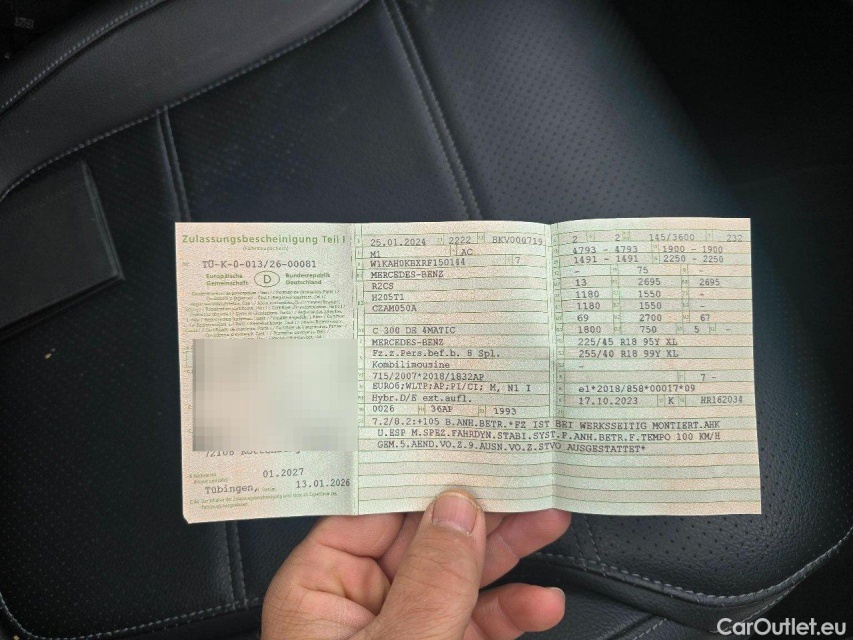 Zulassungsbescheinigung Teil I
(Fahrzeugschein)
TÜ-K-0-013/26-00081
Europäische Gemeinschaft D Bundesrepublik Deutschland
72108
01.2027
Tübingen, 13.01.2026
25.01.2024 2222 BKV000719
M1 AC
W1KAH0KBXRF150144 7
MERCEDES-BENZ
R2CS
H205T1
CZAM050A
C 300 DE 4MATIC
MERCEDES-BENZ
Fz.z.Pers.bef.b. 8 Spl.
Kombilimousine
715/2007*2018/1832AP
EURO6;WLTP;AP;PI/CI; M, N1 I
Hybr.D/E ext.aufl.
0026 36AP 1993
2 2 145/3600 232
4793 - 4793 1900 - 1900
1491 - 1491 2250 - 2250
- 75 -
13 2695 2695
1180 1550 -
1180 1550 -
69 2700 67
1800 750 5 -
225/45 R18 95Y XL
255/40 R18 99Y XL
-
- 7 -
e1*2018/858*00017*09
17.10.2023 K HR162034
7.2/8.2:+105 B.ANH.BETR.*FZ IST BEI WERKSSEITIG MONTIERT.AHK
U.ESP M.SPEZ.FAHRDYN.STABI.SYST.F.ANH.BETR.F.TEMPO 100 KM/H
GEM.5.AEND.VO.Z.9.AUSN.VO.Z.STVO AUSGESTATTET*
CarOutlet.eu